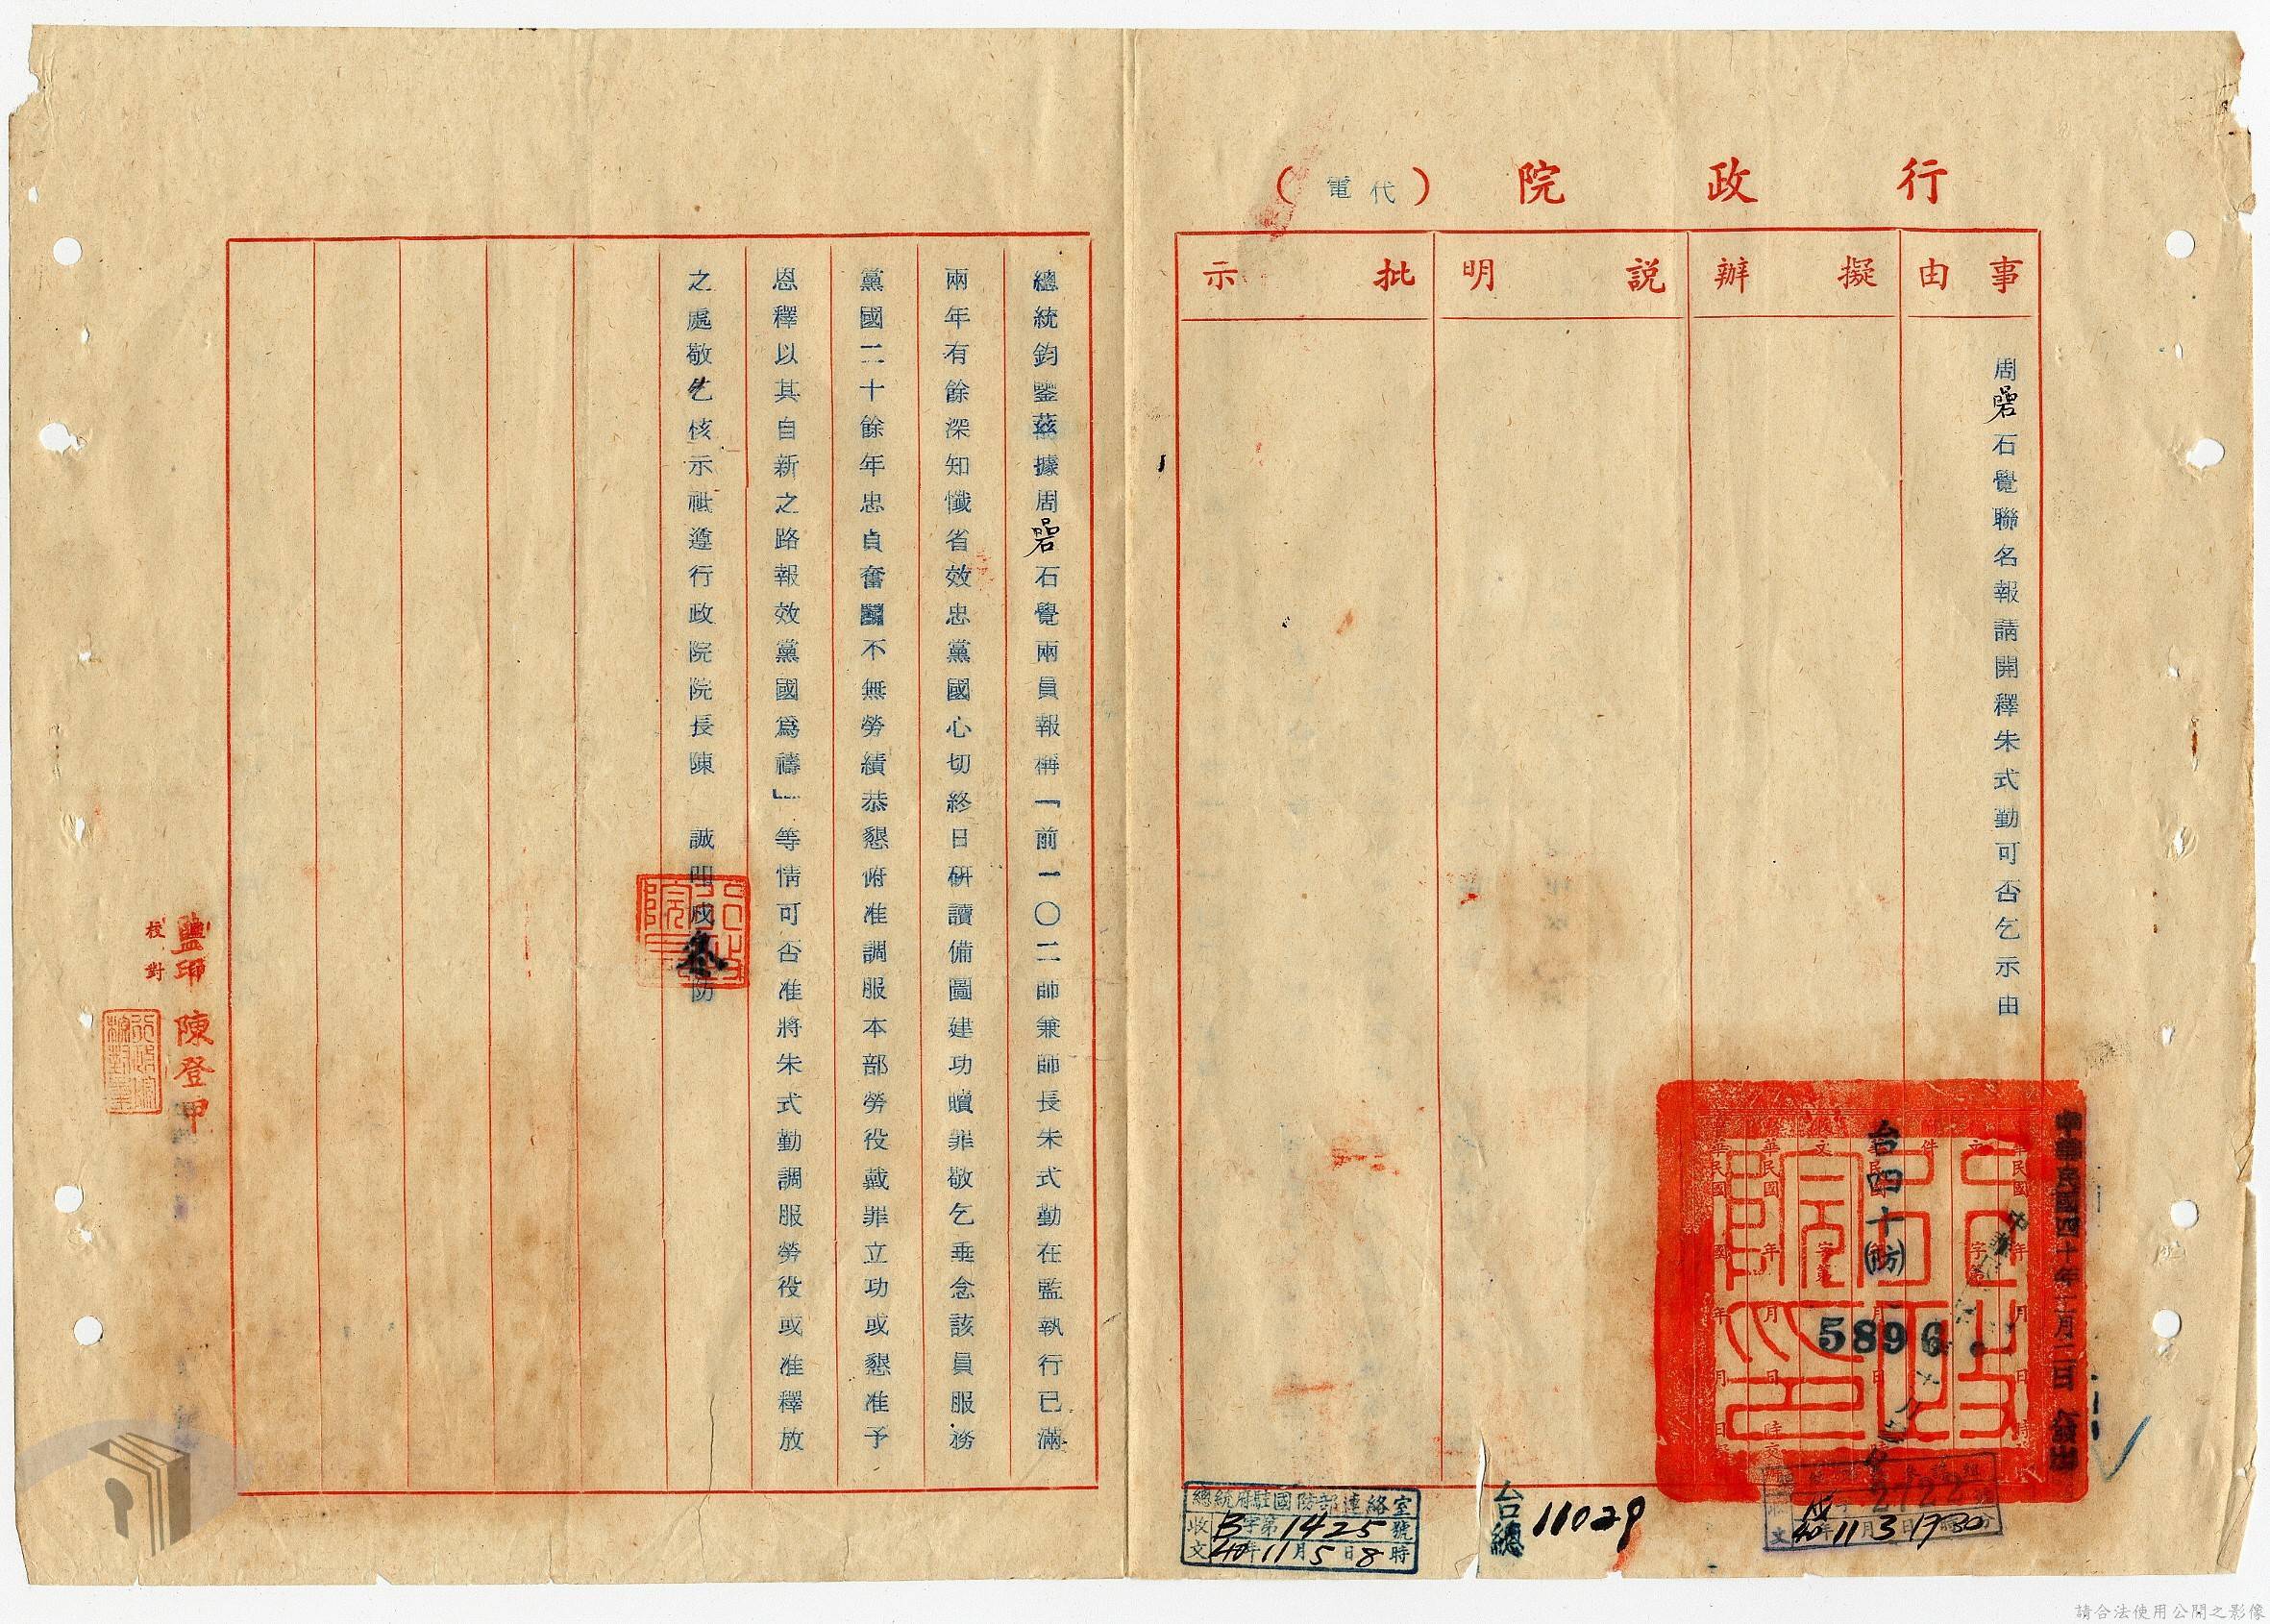 行政院（代電）
事由
擬辦
說明
批示
周碞石覺聯名報請開釋朱式勤可否乞示由
中華民國四十年十一月二日 發出
台四十(防)
5896
2722
40年11月3日1930
台總 11029
總統府駐國防部連絡室
收文 B字第1425號
40年11月5日8時
總統鈞鑒茲據周碞石覺兩員報稱「前一〇二師兼師長朱式勤在監執行已滿
兩年有餘深知懺省效忠黨國心切終日研讀備圖建功贖罪敬乞垂念該員服務
黨國二十餘年忠貞奮鬪不無勞績恭懇俯准調服本部勞役戴罪立功或懇准予
恩釋以其自新之路報效黨國爲禱」等情可否准將朱式勤調服勞役或准釋放
之處敬乞核示祗遵行政院院長陳 誠 戍 防
監印 陳登甲
校對
請合法使用公開之影像